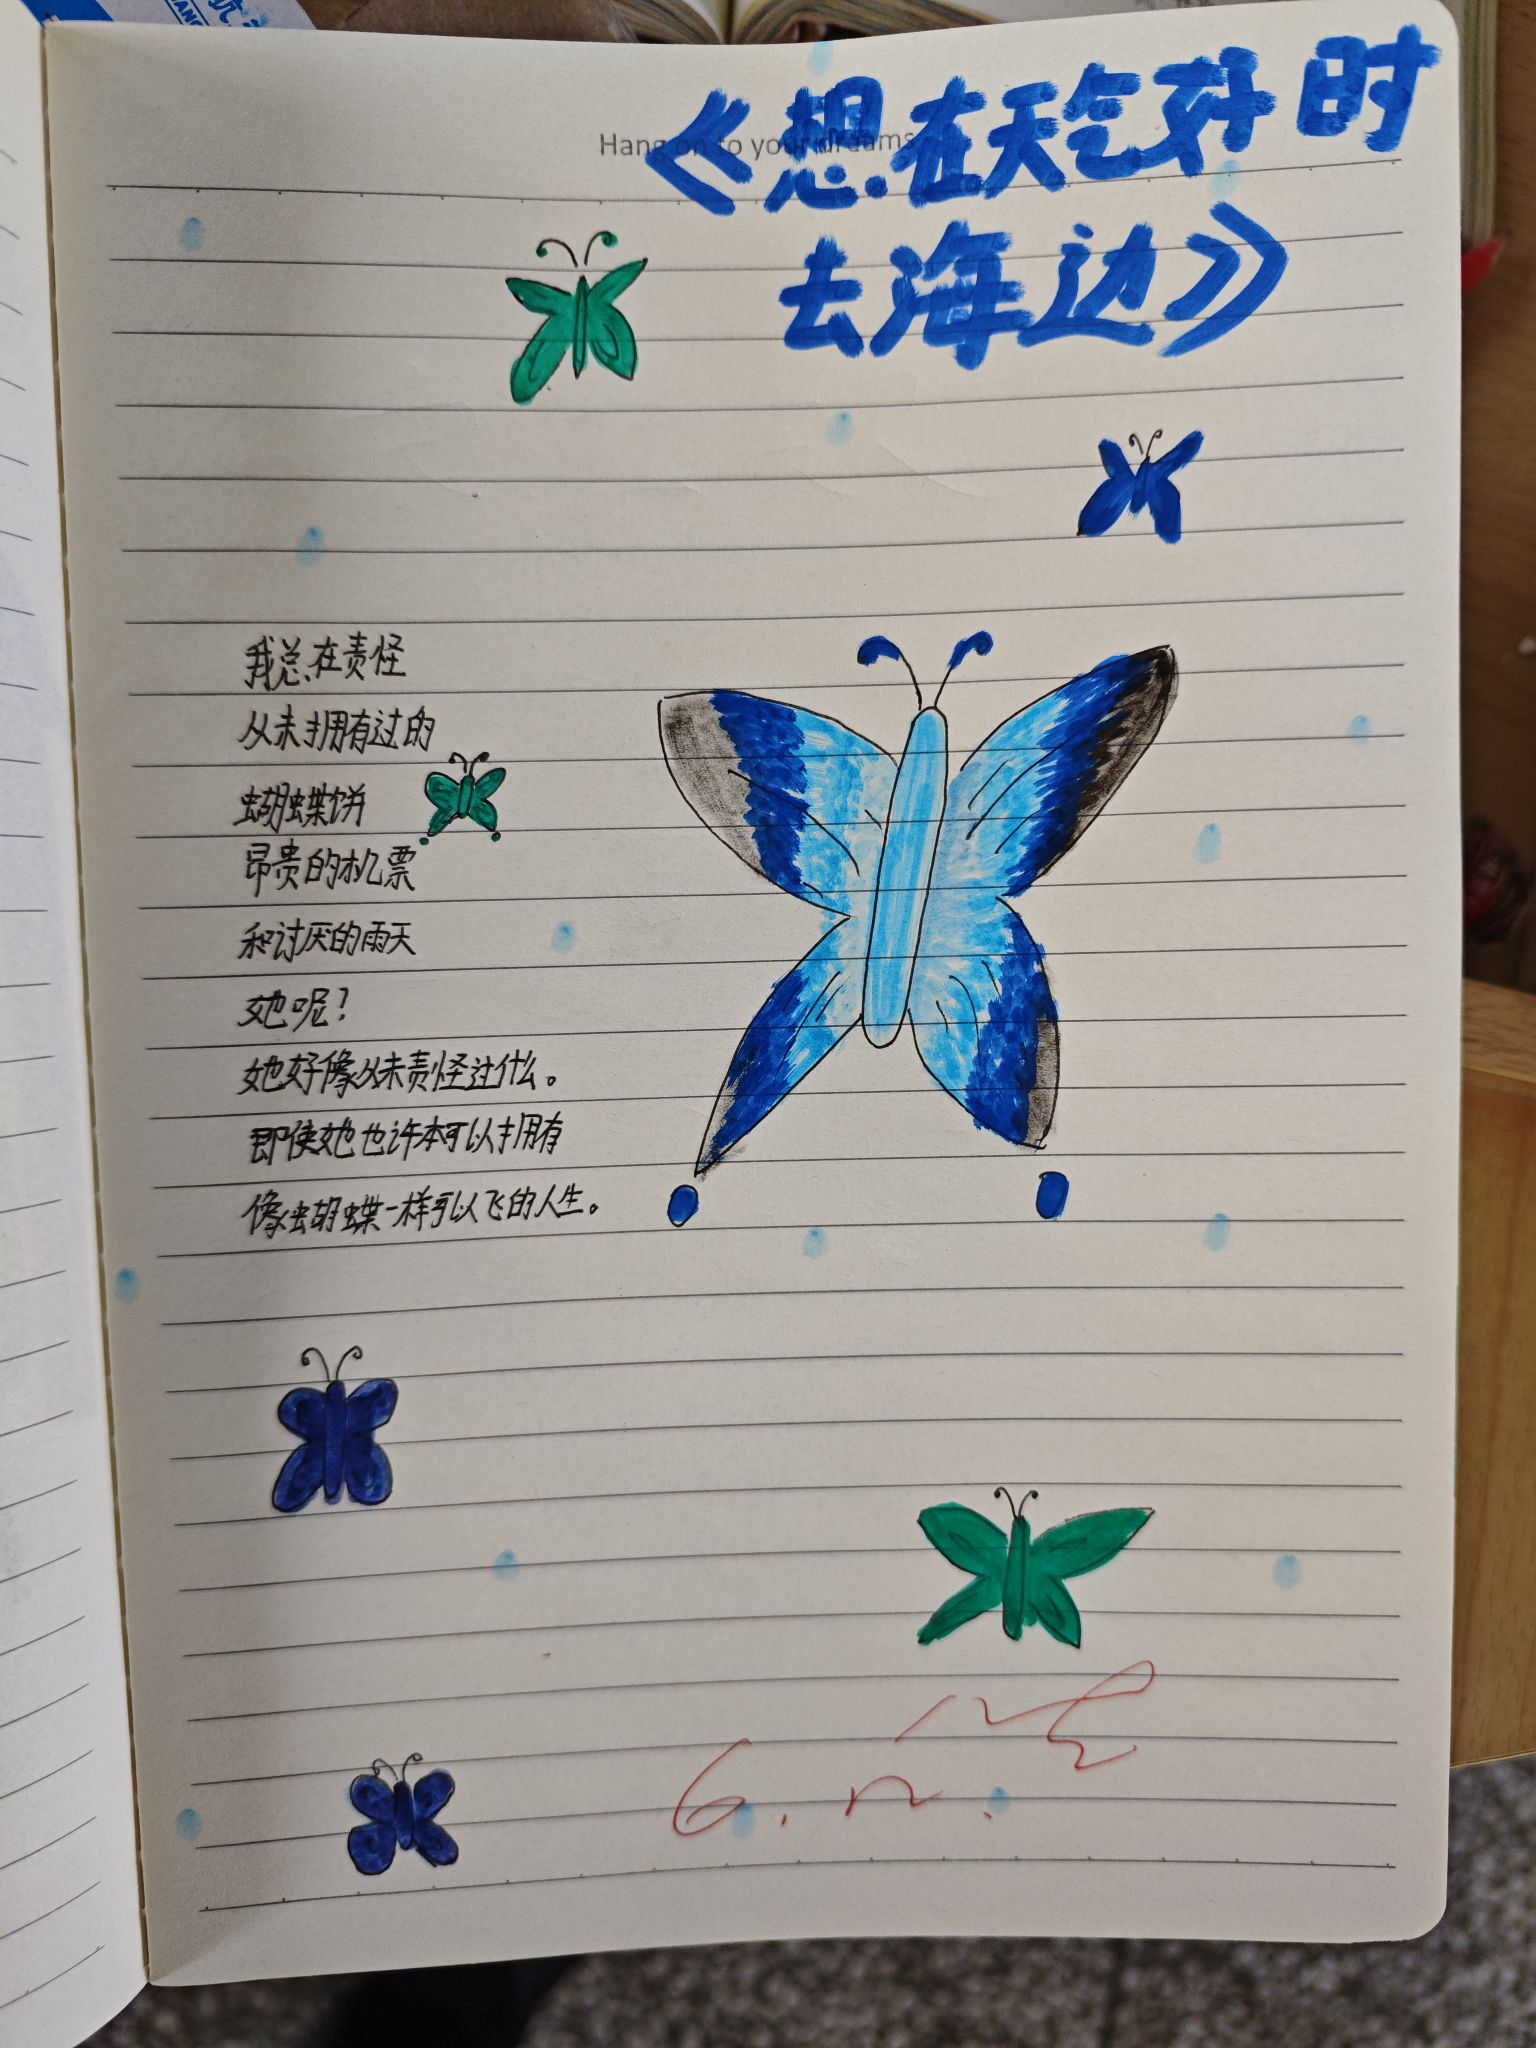 Hang on to your dreams
《想在天气好时
去海边》
我总在责怪
从未拥有过的
蝴蝶饼
昂贵的机票
和讨厌的雨天
她呢？
她好像从未责怪过什么。
即使她也许本可以拥有
像蝴蝶一样可以飞的人生。